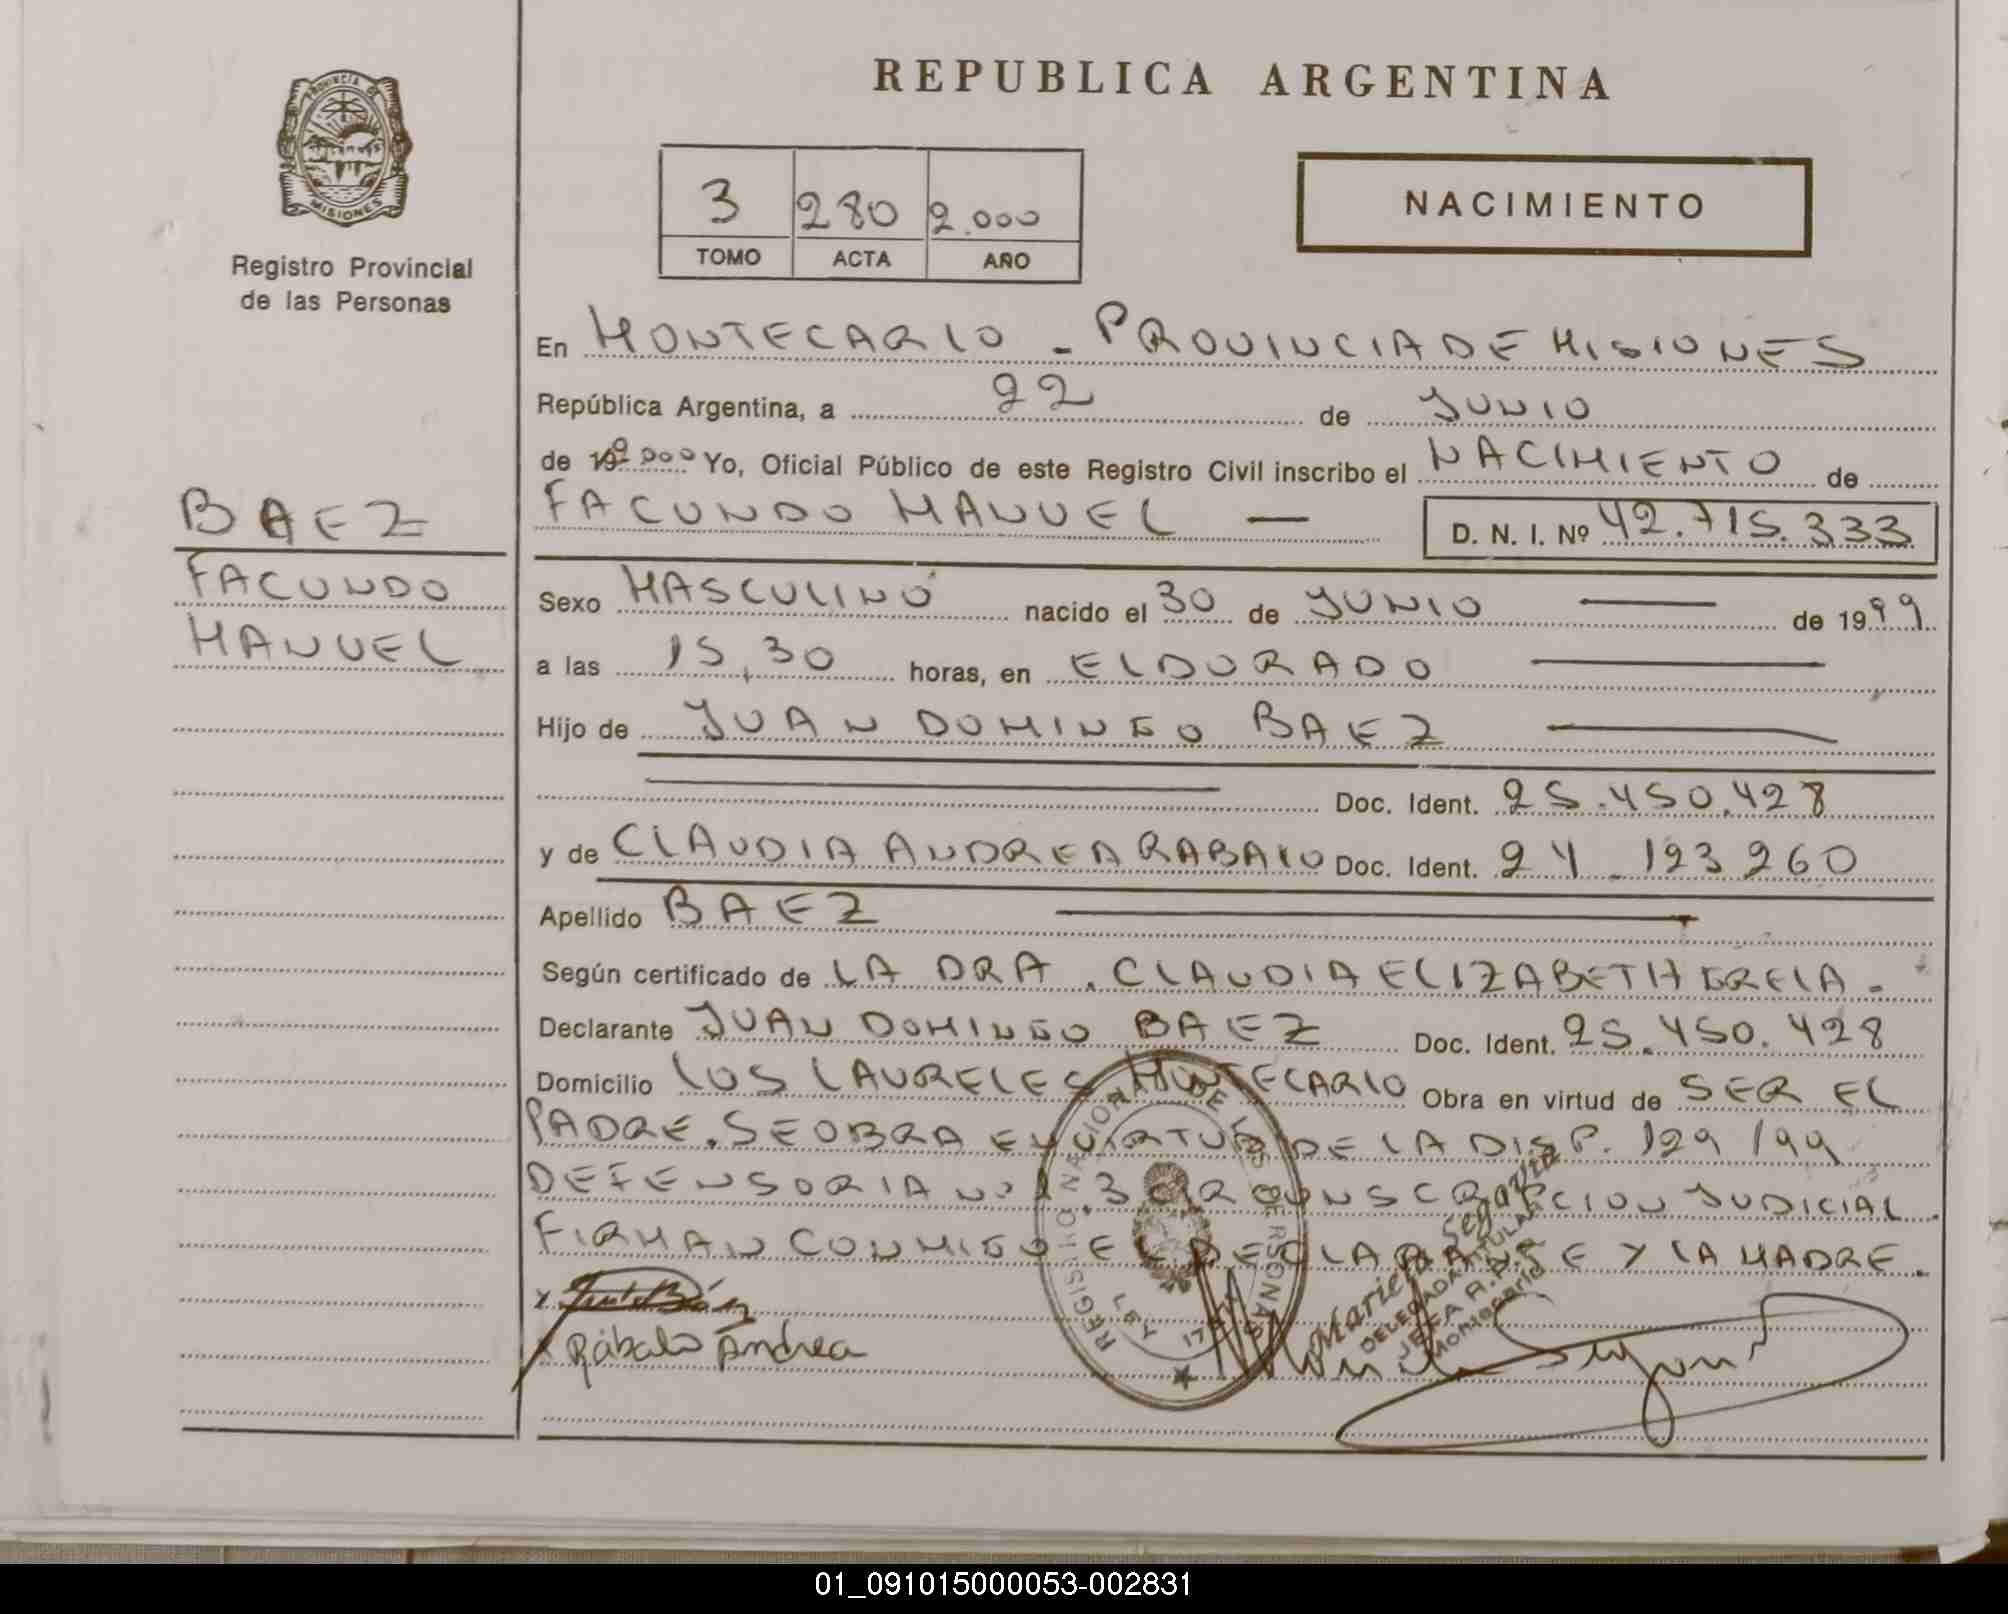 REPUBLICA ARGENTINA
PROVINCIA DE
MISIONES
Registro Provincial
de las Personas
3 280 2.000
TOMO ACTA AÑO
NACIMIENTO
En MONTECARLO - PROVINCIA DE MISIONES
República Argentina, a 22 de JUNIO
de 2.000 Yo, Oficial Público de este Registro Civil inscribo el NACIMIENTO de
FACUNDO MANUEL — D. N. I. Nº 42.715.333
BAEZ
FACUNDO
MANUEL
Sexo MASCULINO nacido el 30 de JUNIO — de 1999
a las 15,30 horas, en ELDORADO —
Hijo de JUAN DOMINGO BAEZ —
— Doc. Ident. 25.450.428
y de CLAUDIA ANDREA RABALO Doc. Ident. 24.123260
Apellido BAEZ —
Según certificado de LA DRA. CLAUDIA ELIZABETH GRELA.
Declarante JUAN DOMINGO BAEZ Doc. Ident. 25.450.428
Domicilio LOS LAURELES MONTECARLO Obra en virtud de SER EL
PADRE. SE OBRA EN VIRTUD DE LA DISP. 129/99
DEFENSORIA Nº 1. 3 CIRCUNSCRIPCION JUDICIAL.
FIRMAN CONMIGO EL DECLARANTE Y LA MADRE.
x
x Rábalo Andrea
REGISTRO NACIONAL DE LAS PERSONAS
Mariela Segovia
DELEGADA TITULAR
JEFA R.P.P.
Montecarlo
01_091015000053-002831